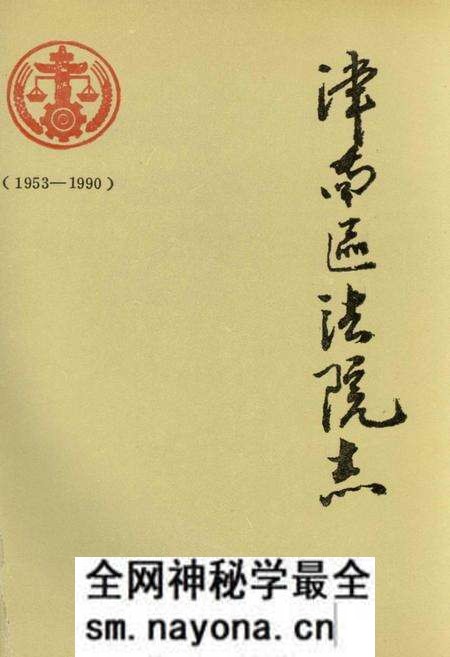 津南区法院志
（1953—1990）
全网神秘学最全
sm.nayona.cn